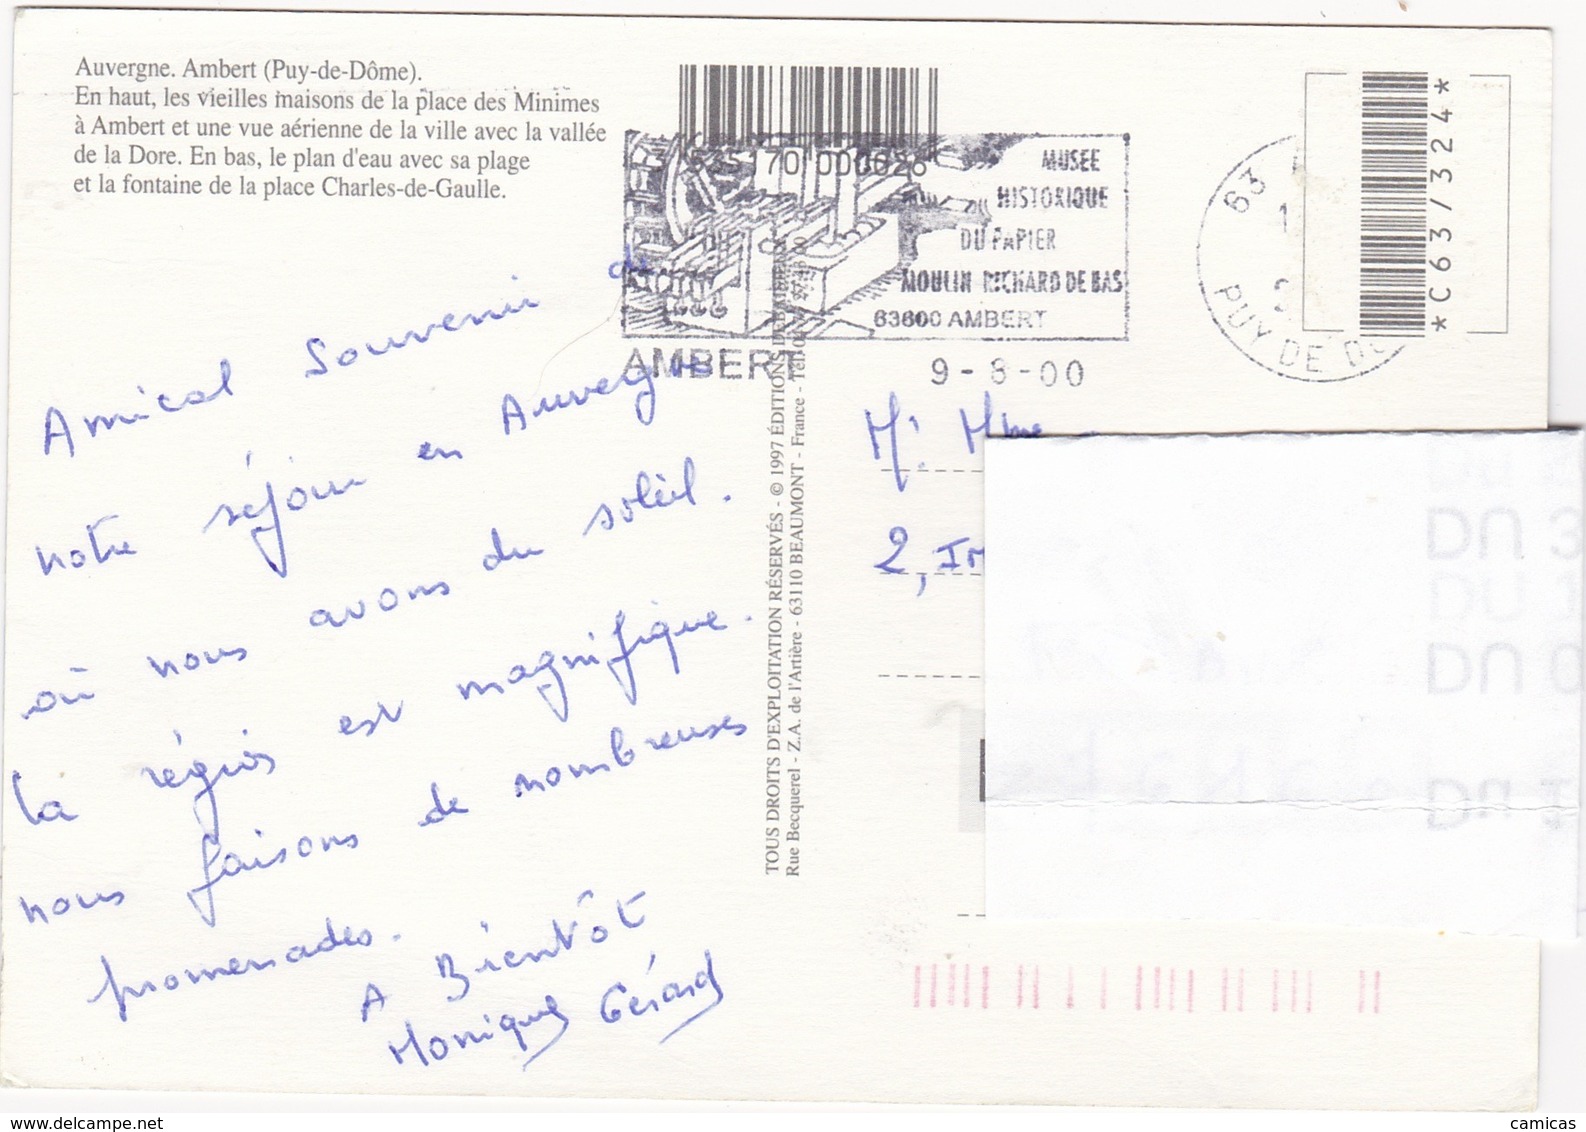 Auvergne. Ambert (Puy-de-Dôme).
En haut, les vieilles maisons de la place des Minimes
à Ambert et une vue aérienne de la ville avec la vallée
de la Dore. En bas, le plan d'eau avec sa plage
et la fontaine de la place Charles-de-Gaulle.
3 535170 000626
MUSEE
HISTORIQUE
DU PAPIER
MOULIN RICHARD DE BAS
63600 AMBERT
AMBERT
9-8-00
63
PUY DE DO
*C63/324*
Amical Souvenir de
notre séjour en Auvergne
où nous avons du soleil.
la région est magnifique.
nous faisons de nombreuses
promenades.
A Bientôt
Monique Gérard
TOUS DROITS D'EXPLOITATION RÉSERVÉS - © 1997 ÉDITIONS DEBAISIEUX
Rue Becquerel - Z.A. de l'Artière - 63110 BEAUMONT - France - Tél.
Mr Mme
2, Im
DU 3
DU 1
DU 0
camicas